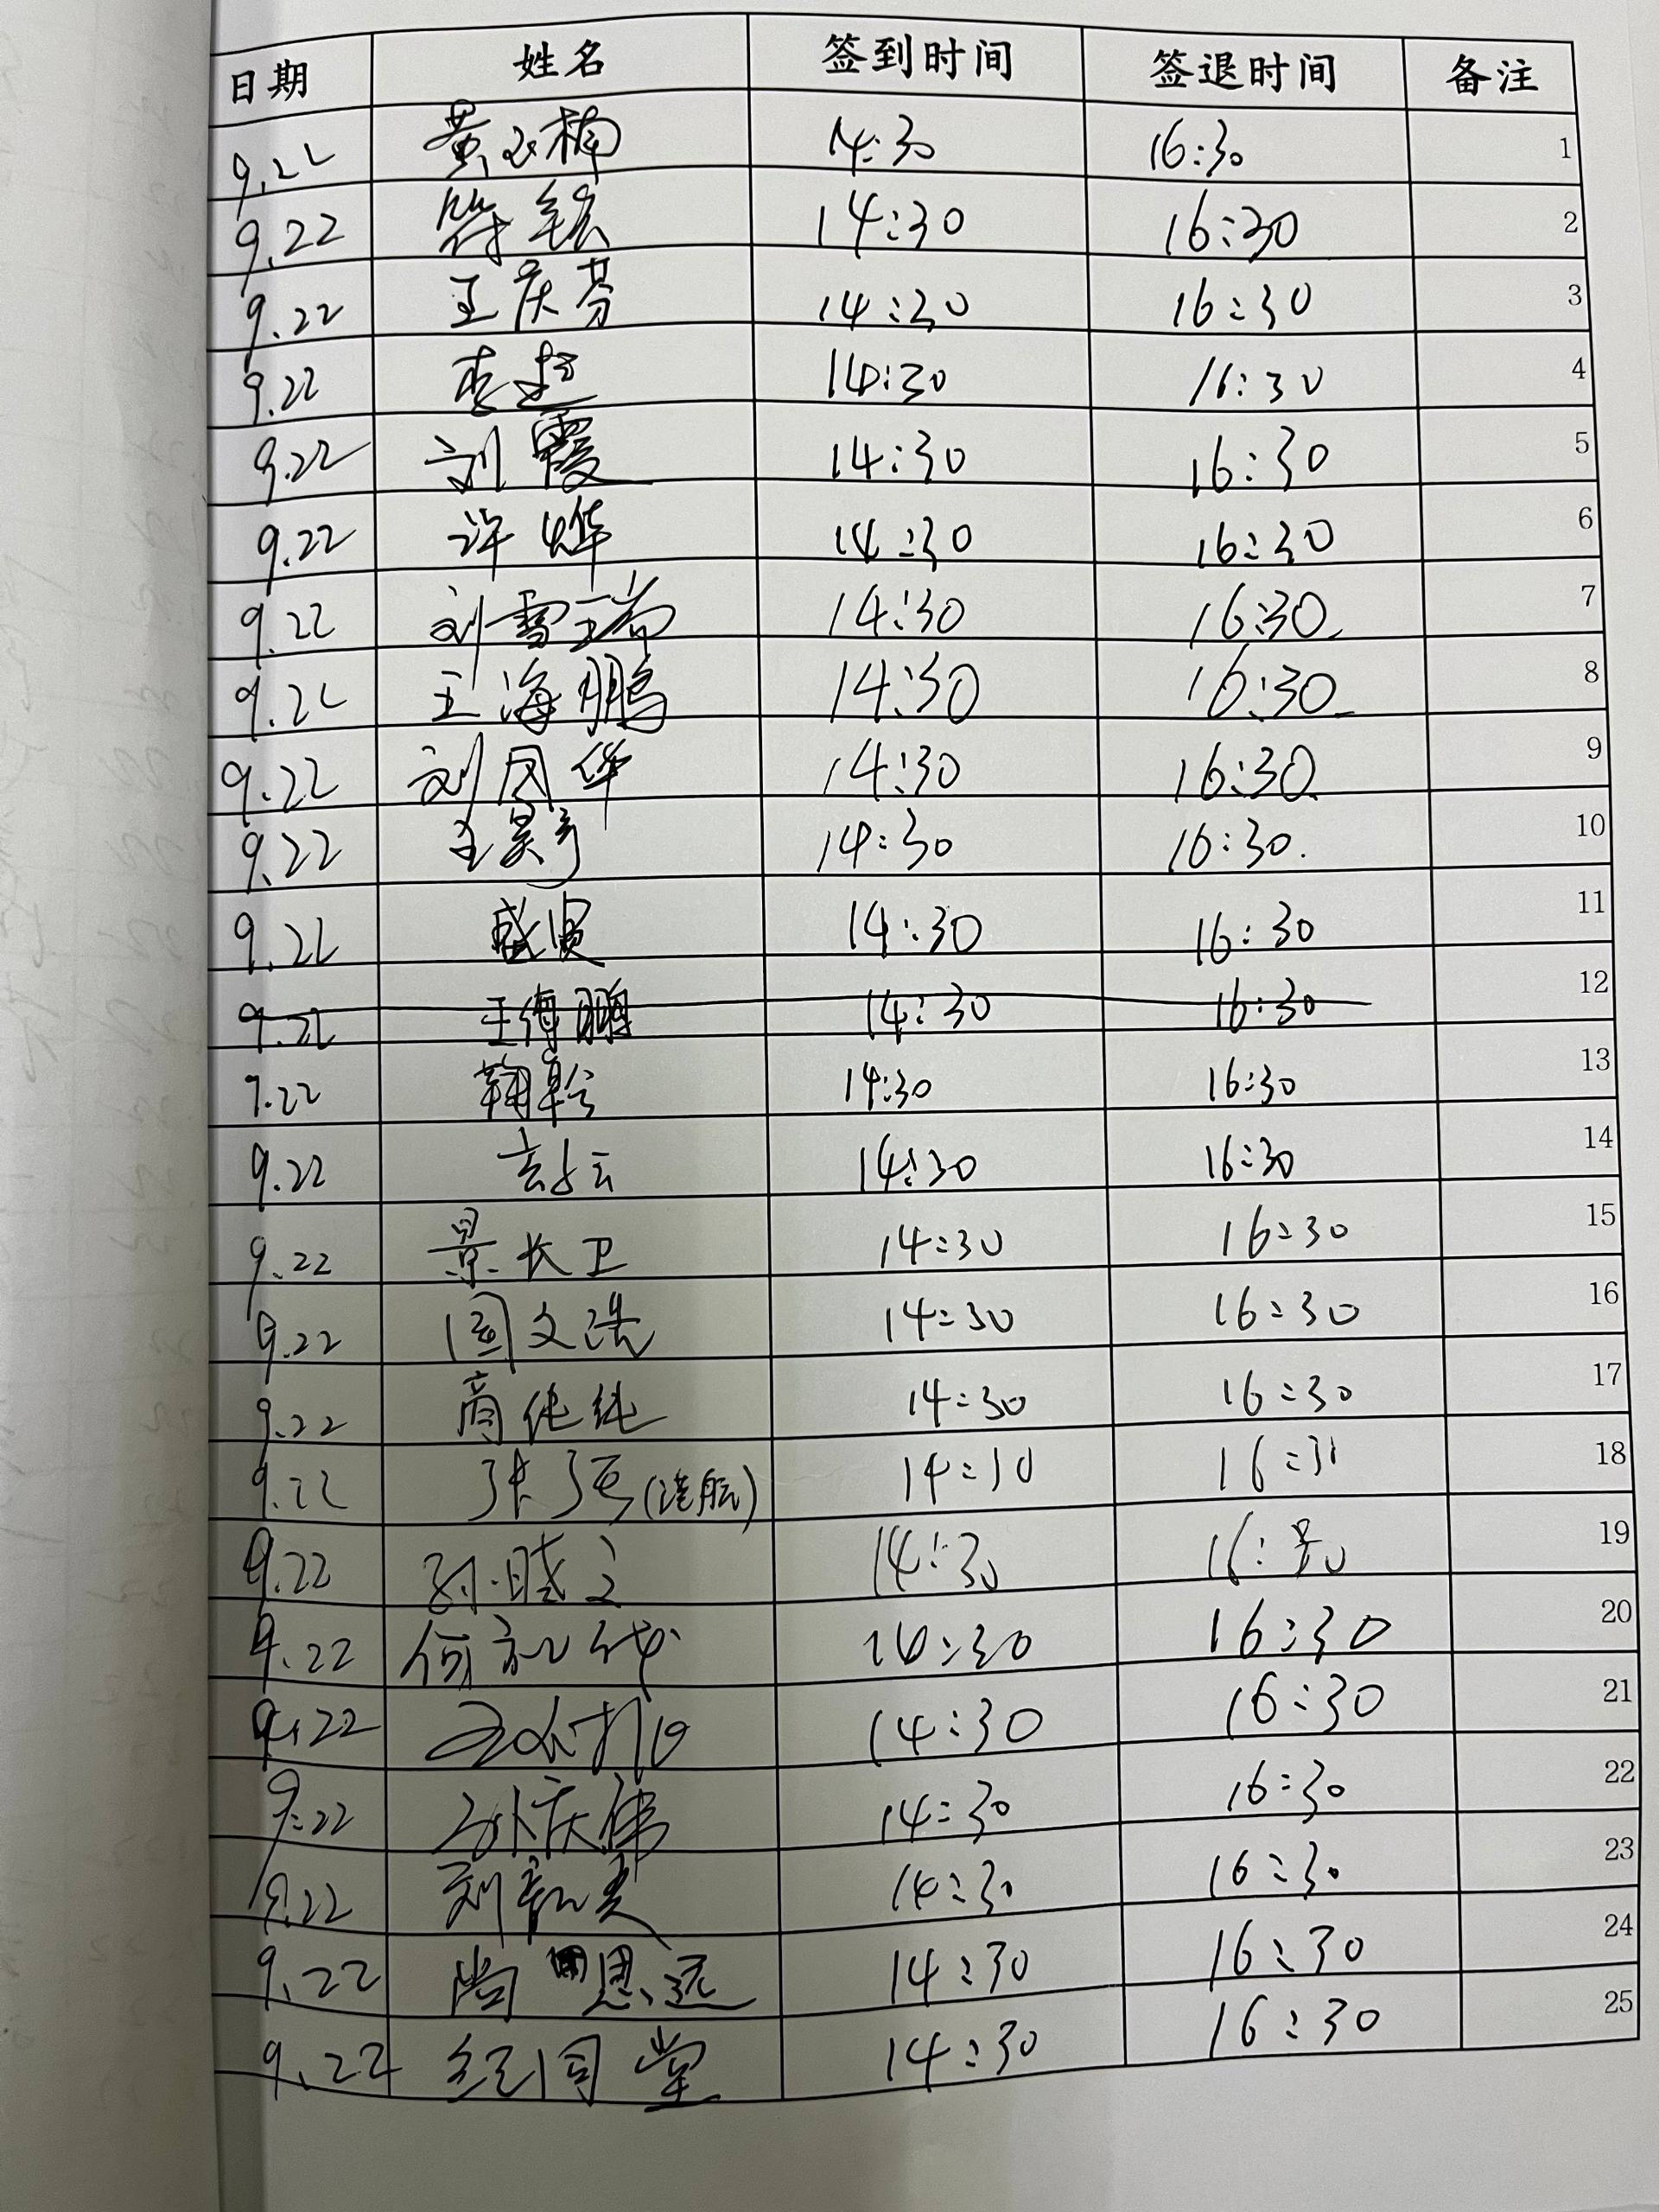 日期 姓名 签到时间 签退时间 备注
9.22 黄玉楠 14:30 16:30 1
9.22 符 14:30 16:30 2
9.22 王庆芬 14:30 16:30 3
9.22 李超 14:30 16:30 4
9.22 刘霞 14:30 16:30 5
9.22 许烨 14:30 16:30 6
9.22 刘雪瑞 14:30 16:30 7
9.22 王海鹏 14:30 16:30 8
9.22 刘风华 14:30 16:30 9
9.22 王昊 14:30 16:30. 10
9.22 14:30 16:30 11
9.22 14:30 16:30 12
9.22 14:30 16:30 13
9.22 14:30 16:30 14
9.22 景长卫 14:30 16:30 15
9.22 国文浩 14:30 16:30 16
9.22 商纯纯 14:30 16:30 17
9.22 张 14:30 18
9.22 孙晓 14:30 19
9.22 何 14:30 16:30 20
9.22 14:30 16:30 21
9.22 孙庆伟 14:30 16:30 22
9.22 刘 14:30 16:30 23
9.22 尚思远 14:30 16:30 24
9.22 红同堂 14:30 16:30 25